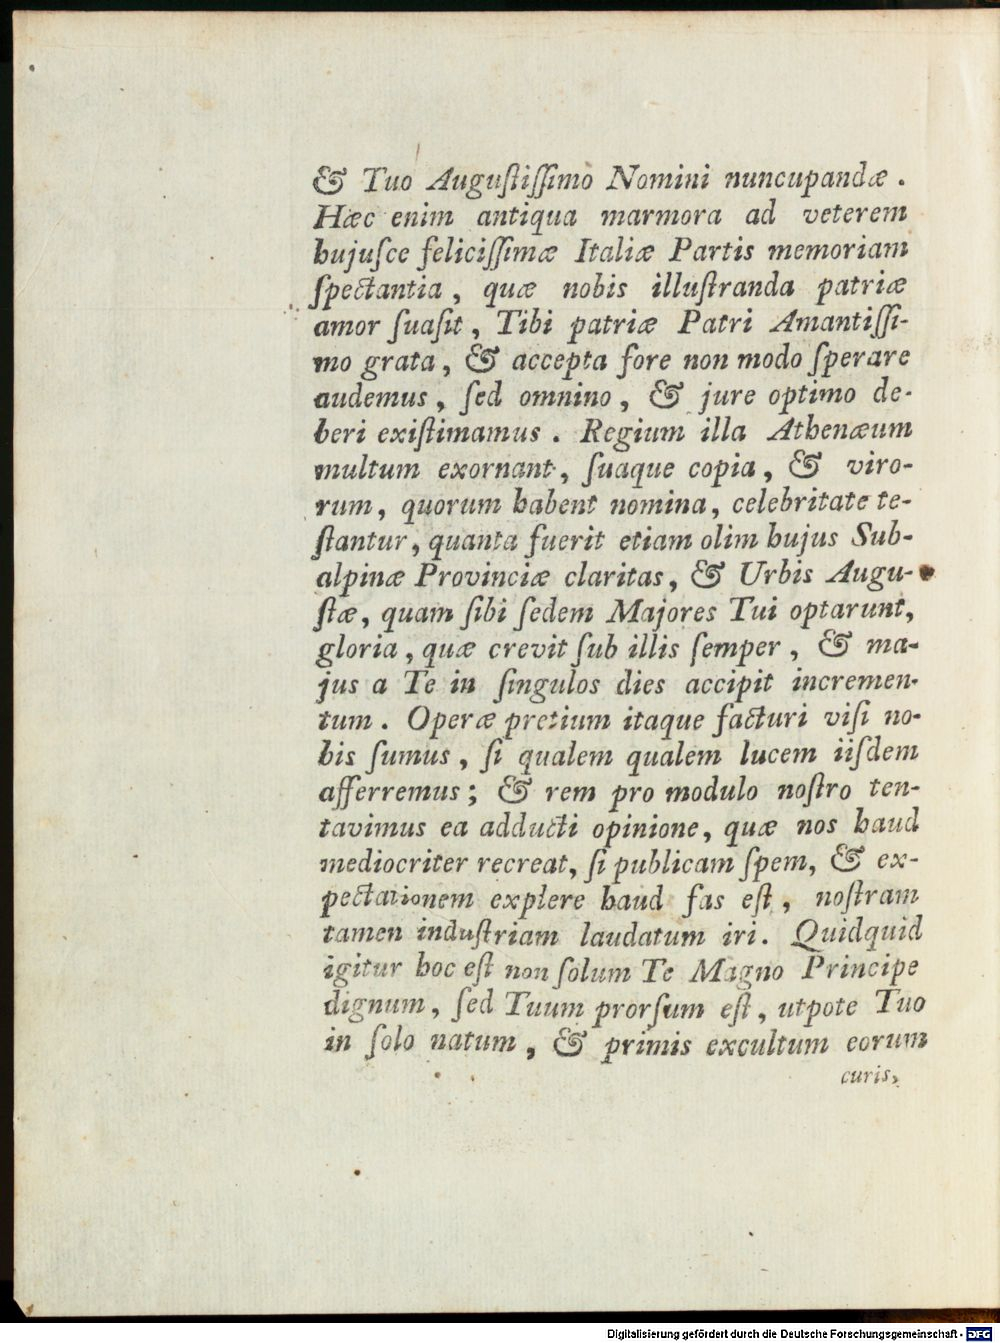 & Tuo Auguſtiſſimo Nomini nuncupandæ .
Hæc enim antiqua marmora ad veterem
hujuſce feliciſſimæ Italiæ Partis memoriam
ſpectantia , quæ nobis illuſtranda patriæ
amor ſuaſit , Tibi patriæ Patri Amantiſſi-
mo grata , & accepta fore non modo ſperare
audemus , ſed omnino , & jure optimo de-
beri exiſtimamus . Regium illa Athenæum
multum exornant , ſuaque copia , & viro-
rum , quorum habent nomina , celebritate te-
ſtantur , quanta fuerit etiam olim hujus Sub-
alpinæ Provinciæ claritas , & Urbis Augu-
ſtæ , quam ſibi ſedem Majores Tui optarunt,
gloria , quæ crevit ſub illis ſemper , & ma-
jus a Te in ſingulos dies accipit incremen-
tum . Operæ pretium itaque facturi viſi no-
bis ſumus , ſi qualem qualem lucem iiſdem
afferremus ; & rem pro modulo noſtro ten-
tavimus ea adducti opinione, quæ nos haud
mediocriter recreat, ſi publicam ſpem, & ex-
pectationem explere haud fas eſt , noſtram
tamen induſtriam laudatum iri. Quidquid
igitur hoc eſt non ſolum Te Magno Principe
dignum , ſed Tuum prorſum eſt , utpote Tuo
in ſolo natum , & primis excultum eorum
curis,
Digitalisierung gefördert durch die Deutsche Forschungsgemeinschaft - DFG